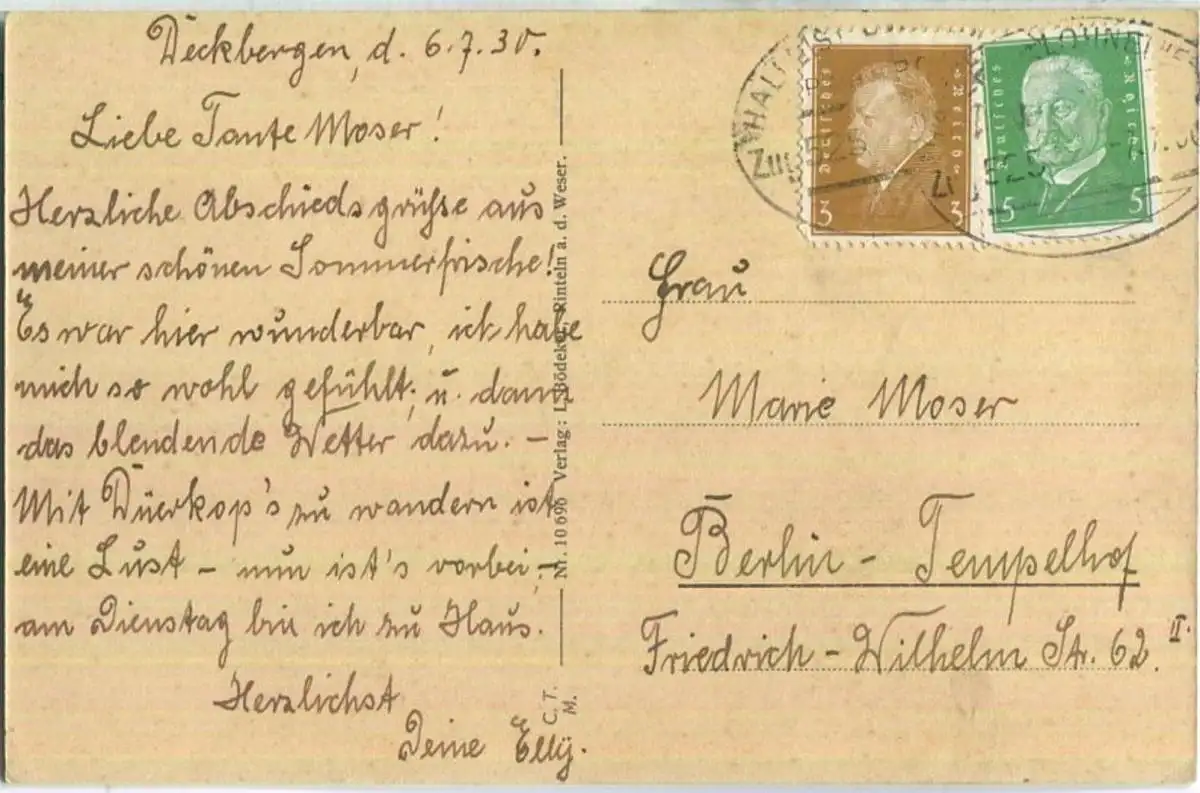 Deckbergen, d. 6.7.30.
Liebe Tante Moser!
Herzliche Abschiedsgrüße aus
meiner schönen Sommerfrische!
Es war hier wunderbar, ich habe
mich so wohl gefühlt, u. dann
das blendende Wetter dazu. –
Mit Düerkop's zu wandern ist
eine Lust – nun ist's vorbei, –
am Dienstag bin ich zu Haus.
Herzlichst
Deine Elly.
Nr. 10696 Verlag: L. Bödeker, Rinteln a. d. Weser.
C. T.
M.
Deutsches Reich
3 3
Deutsches Reich
5 5
Frau
Marie Moser
Berlin - Tempelhof
Friedrich - Wilhelm Str. 62 II.